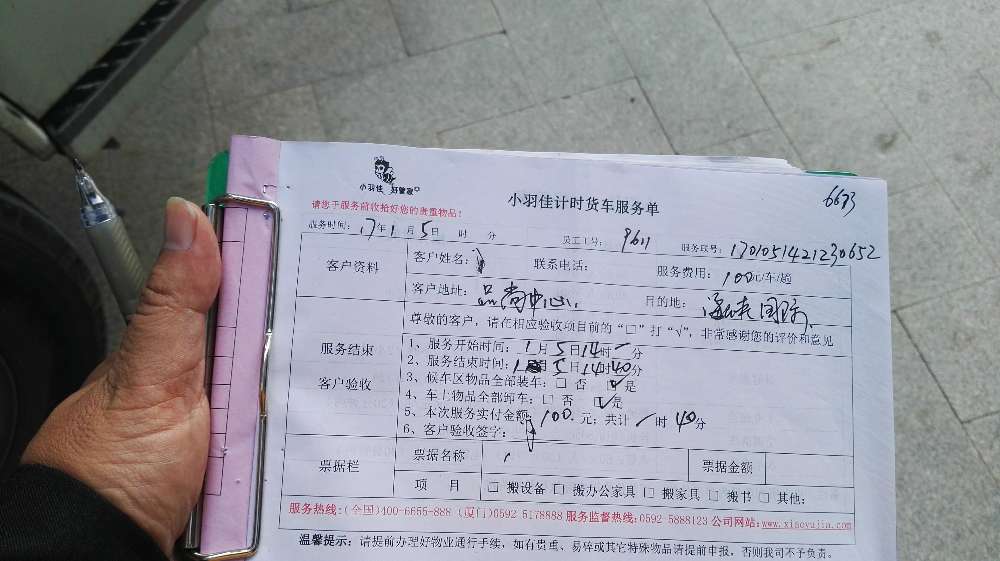 6673
小羽佳 好管家
小羽佳计时货车服务单
请您于服务前收拾好您的贵重物品!
服务时间: 17年 1月 5日 时 分 员工工号: 9611 服务联号: 1701051421230652
客户资料 客户姓名: 联系电话: 服务费用: 100元/车/趟
客户地址: 品尚中心 目的地: 海峡国际
尊敬的客户, 请在相应验收项目前的“□”打“√”, 非常感谢您的评价和意见
服务结束 客户验收
1、服务开始时间: 1月 5日14时 分
2、服务结束时间: 1月 5日14时40分
3、候车区物品全部装车: □ 否 ☑是
4、车上物品全部卸车: □ 否 ☑是
5、本次服务实付金额: 100 元; 共计 时 40分
6、客户验收签字:
票据栏 票据名称 票据金额
项 目 □ 搬设备 □ 搬办公家具 □ 搬家具 □ 搬书 □ 其他:
服务热线:(全国)400-6655-888 (厦门)0592 5178888 服务监督热线:0592 5888123 公司网站:www.xiaoyujia.com
温馨提示: 请提前办理好物业通行手续, 如有贵重、易碎或其它特殊物品请提前申报, 否则我司不予负责。